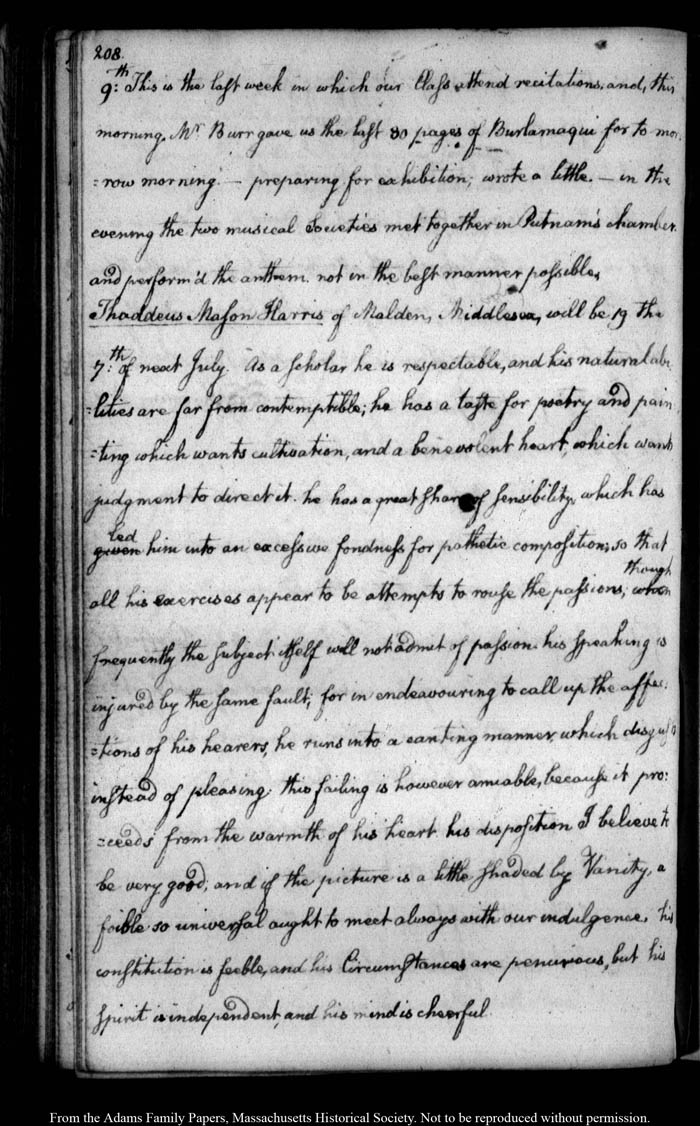 208.
9:th This is the last week in which our Class attend recitations, and, this
morning. Mr. Burr gave us the last 80 pages of Burlamaqui for to mor.
=row morning. — preparing for exhibition; wrote a little. — in the
evening the two musical Societies met together in Putnam's chamber.
and perform'd the anthem. not in the best manner possible.
Thaddeus Mason Harris of Malden, Middlesex, will be 19 the
7:th of next July. As a scholar he is respectable, and his natural abi
=lities are far from contemptible; he has a taste for poetry and pain
=ting which wants cultivation, and a benevolent heart, which wants
judgment to direct it. he has a great share of sensibility, which has
led
given him into an excessive fondness for pathetic composition; so that
though
all his exercises appear to be attempts to rouse the passions; when
frequently the subject itself will not admit of passion. his speaking is
injured by the same fault; for in endeavouring to call up the affec:
=tions of his hearers, he runs into a canting manner, which disgusts
instead of pleasing. this failing is however amiable, because it pro:
=ceeds from the warmth of his heart. his disposition I believe to
be very good; and if the picture is a little shaded by Vanity, a
foible so universal ought to meet always with our indulgence. his
constitution is feeble, and his Circumstances are penurious, but his
spirit is independent, and his mind is cheerful.
From the Adams Family Papers, Massachusetts Historical Society. Not to be reproduced without permission.